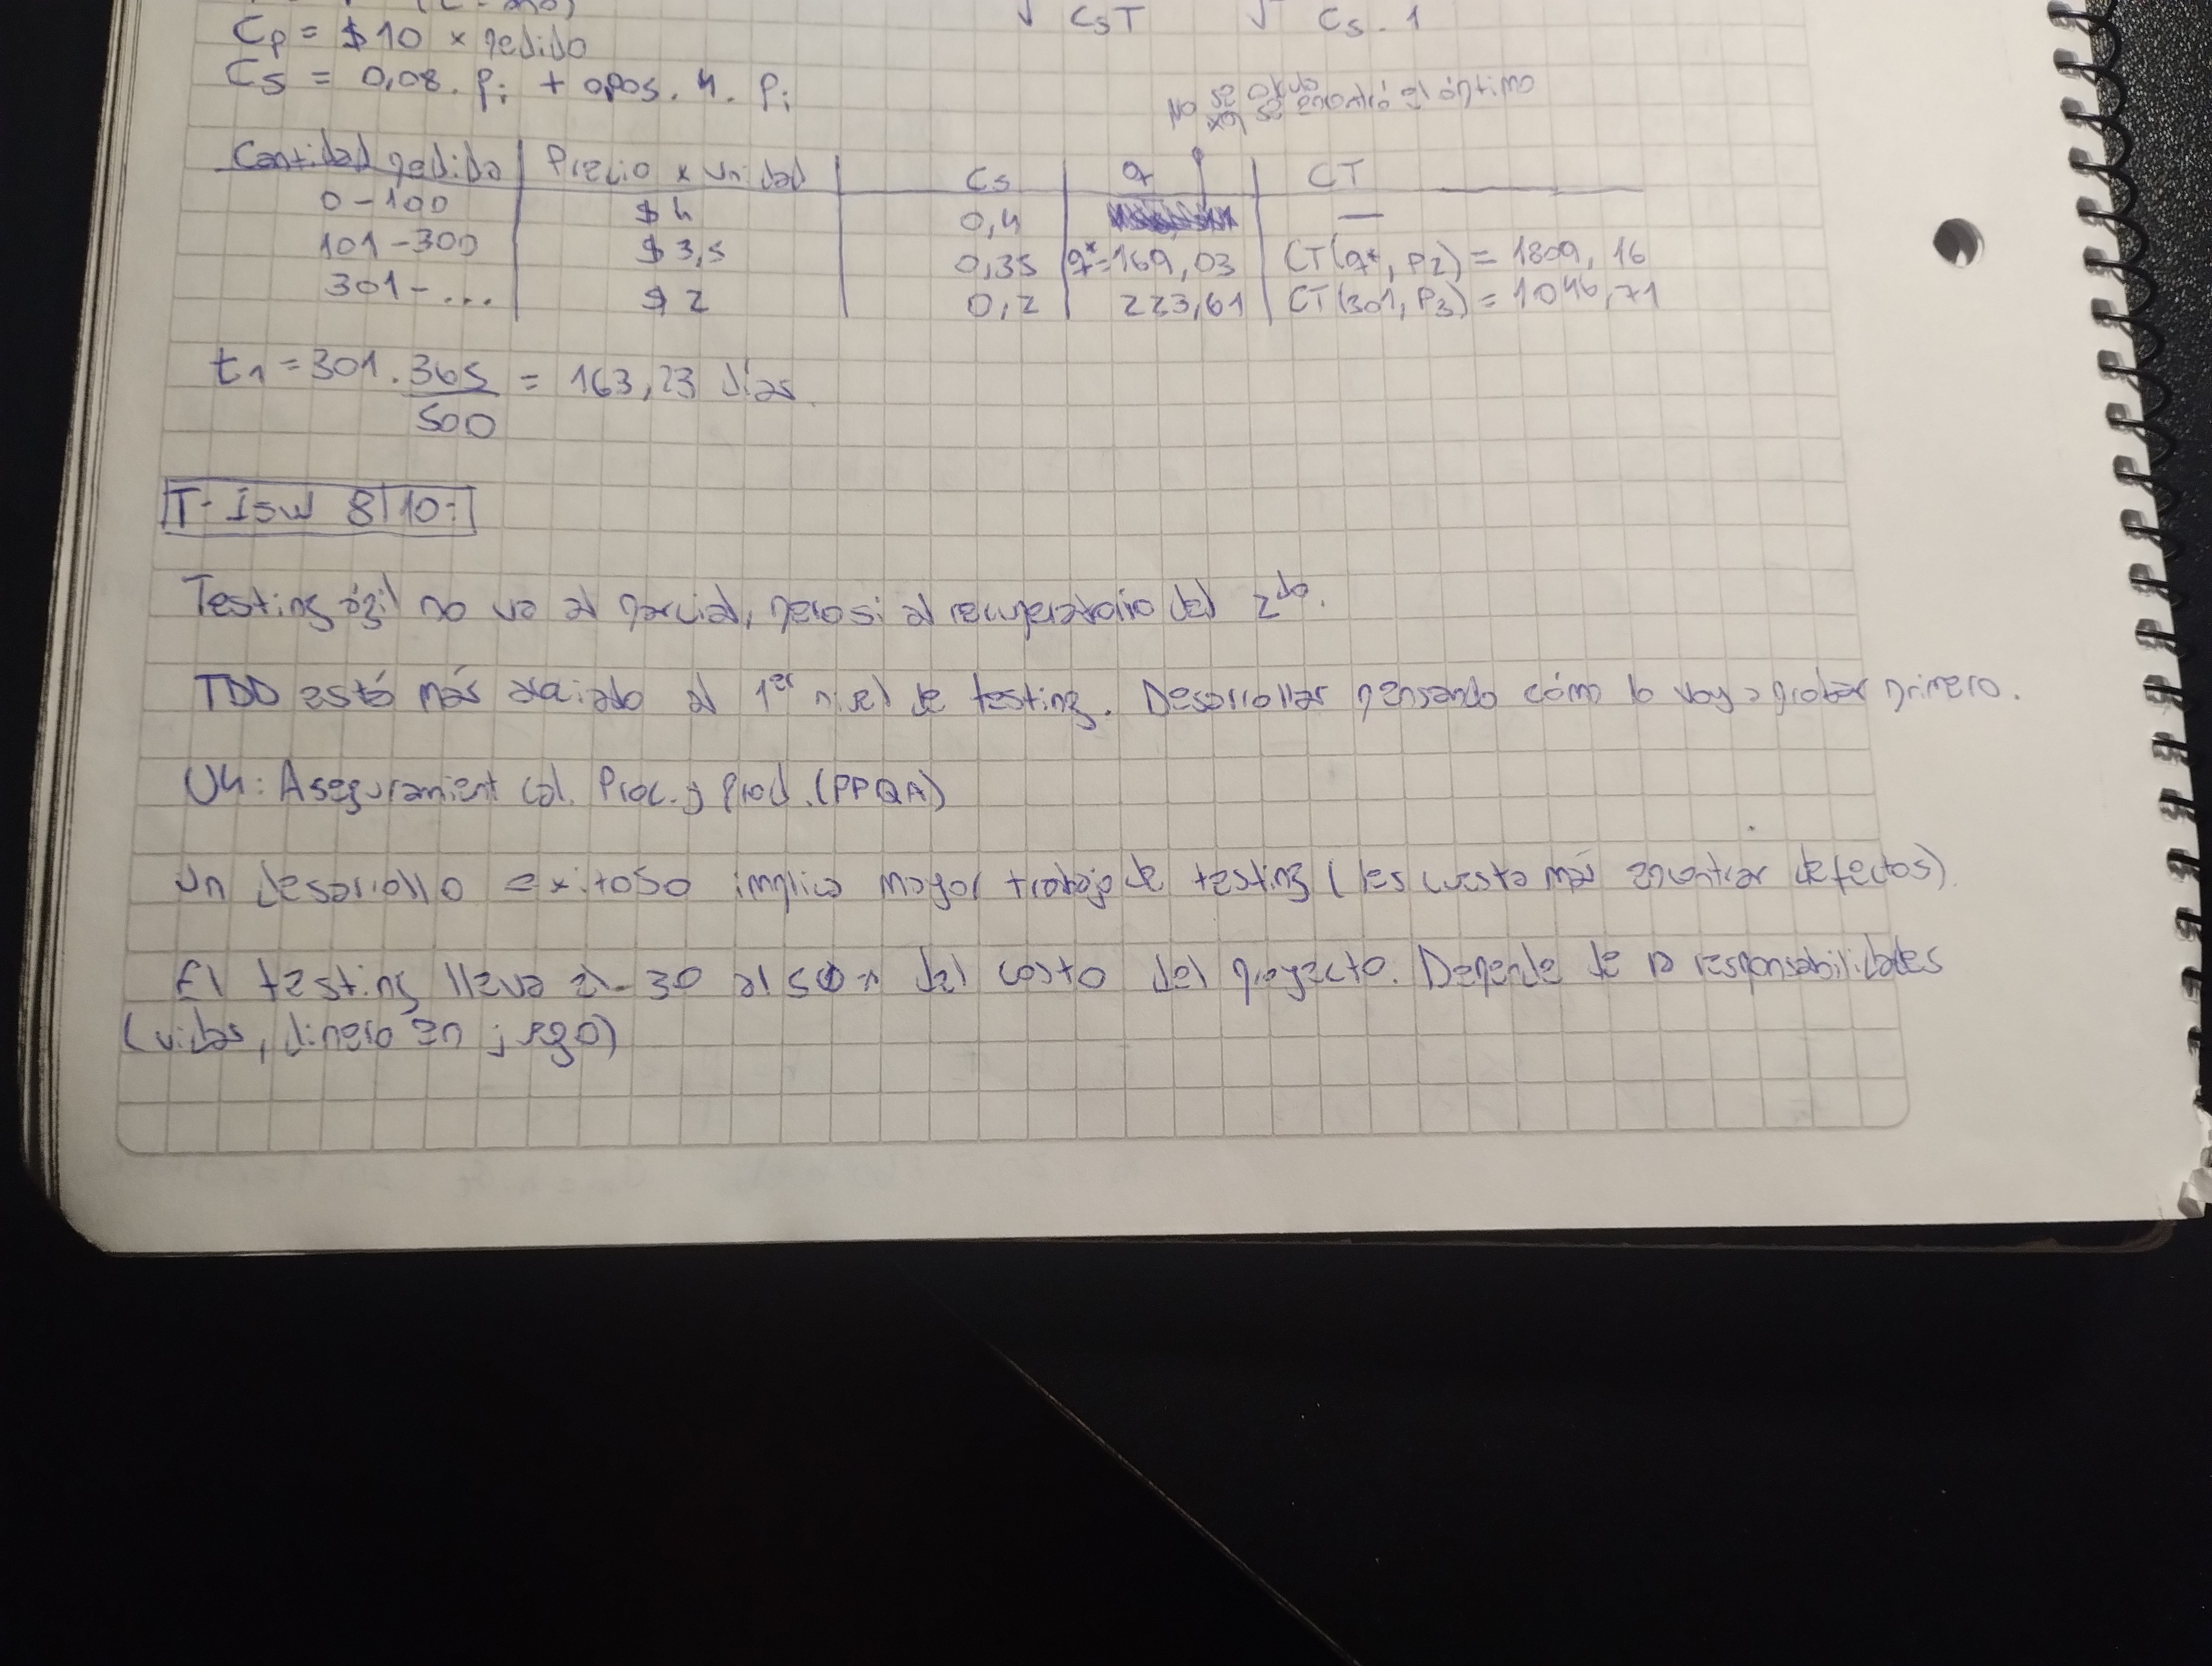 √ CsT √ Cs. 1
Cp = $10 x pedido
Cs = 0,08. Pi + 0,005. 4. Pi
No se calcula
xq se encontró el óptimo
Cantidad pedida | Precio x unidad | Cs | q | CT
0-100 | $4 | 0,4 | | —
101-300 | $3,5 | 0,35 | q*=169,03 | CT(q*, P2) = 1809,16
301-... | $2 | 0,2 | 223,61 | CT(301, P3) = 1046,71
t1 = 301. 365 = 163,23 días
500
T- ISW 8/10:
Testing ágil no va al parcial, pero si al recuperatorio del 2do.
TDD está más asociado al 1er nivel de testing. Desarrollar pensando cómo lo voy a probar primero.
U4: Aseguramient Cal. Proc. y Prod. (PPQA)
Un desarrollo exitoso implica mayor trabajo de testing (les cuesta más encontrar defectos)
El testing lleva el 30 al 50% del costo del proyecto. Depende de responsabilidades
(vidas, dinero en juego)